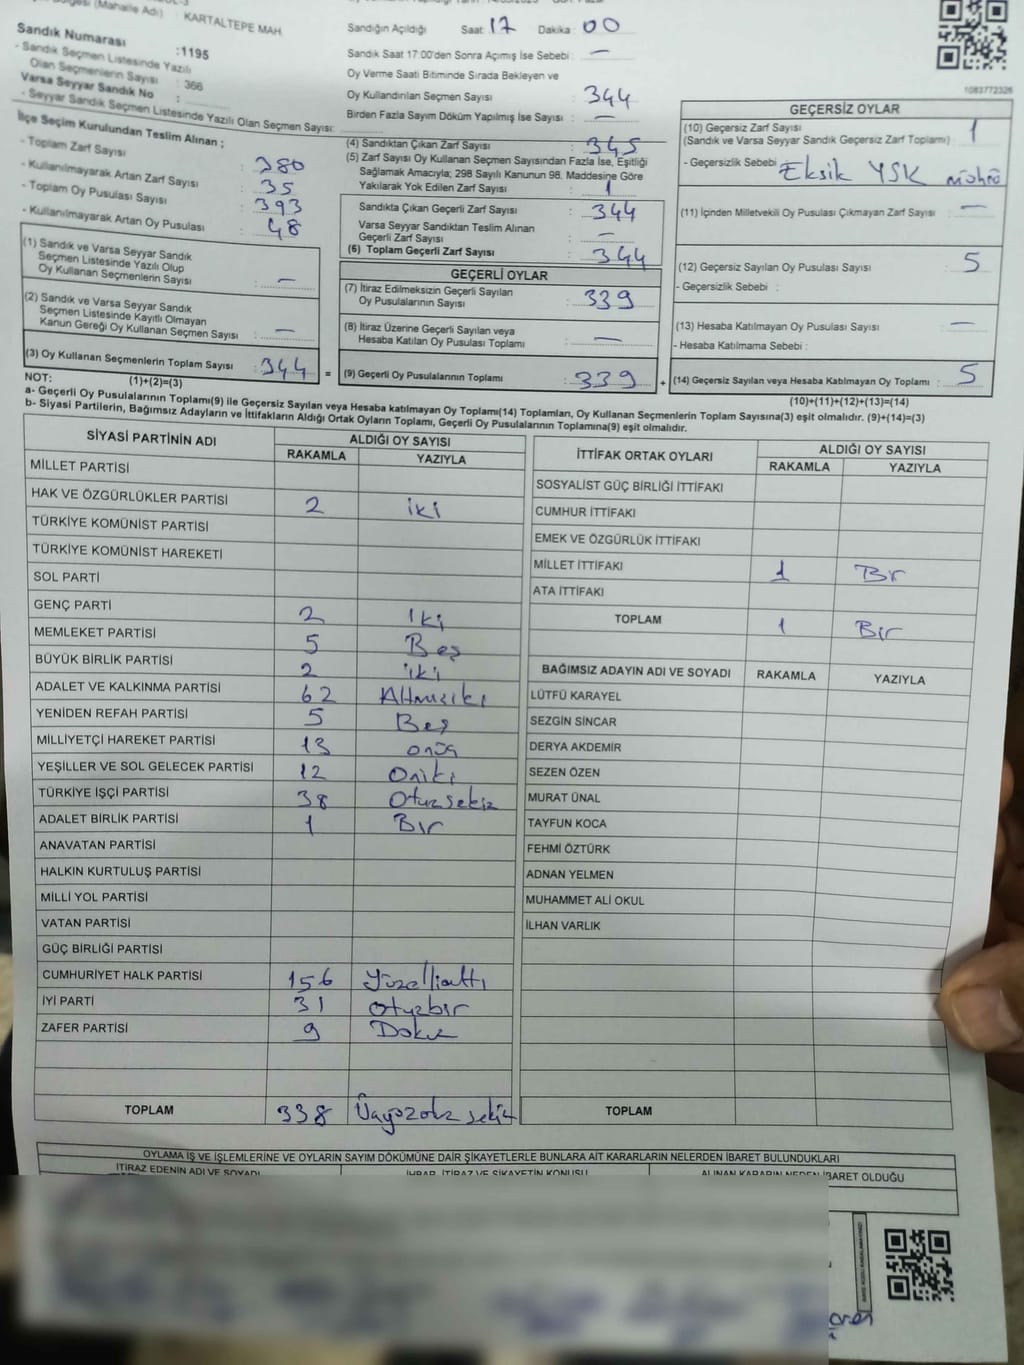 (Mahalle Adı) : KARTALTEPE MAH
Sandık Numarası :1195
- Sandık Seçmen Listesinde Yazılı
Olan Seçmenlerin Sayısı : 366
Varsa Seyyar Sandık No :
- Seyyar Sandık Seçmen Listesinde Yazılı Olan Seçmen Sayısı:
İlçe Seçim Kurulundan Teslim Alınan ;
- Toplam Zarf Sayısı : 380
- Kullanılmayarak Artan Zarf Sayısı : 35
- Toplam Oy Pusulası Sayısı : 393
- Kullanılmayarak Artan Oy Pusulası : 48
(1) Sandık ve Varsa Seyyar Sandık
Seçmen Listesinde Yazılı Olup
Oy Kullanan Seçmenlerin Sayısı : —
(2) Sandık ve Varsa Seyyar Sandık
Seçmen Listesinde Kayıtlı Olmayan
Kanun Gereği Oy Kullanan Seçmen Sayısı : —
(3) Oy Kullanan Seçmenlerin Toplam Sayısı : 344 =
(1)+(2)=(3)
Sandığın Açıldığı Saat : 17 Dakika : 00
Sandık Saat 17:00'den Sonra Açımış İse Sebebi : —
Oy Verme Saati Bitiminde Sırada Bekleyen ve
Oy Kullandırılan Seçmen Sayısı : 344
Birden Fazla Sayım Döküm Yapılmış İse Sayısı : —
(4) Sandıktan Çıkan Zarf Sayısı : 345
(5) Zarf Sayısı Oy Kullanan Seçmen Sayısından Fazla İse, Eşitliği
Sağlamak Amacıyla; 298 Sayılı Kanunun 98. Maddesine Göre
Yakılarak Yok Edilen Zarf Sayısı : 1
Sandıkta Çıkan Geçerli Zarf Sayısı : 344
Varsa Seyyar Sandıktan Teslim Alınan
Geçerli Zarf Sayısı : —
(6) Toplam Geçerli Zarf Sayısı : 344
GEÇERLİ OYLAR
(7) İtiraz Edilmeksizin Geçerli Sayılan
Oy Pusulalarının Sayısı : 339
(8) İtiraz Üzerine Geçerli Sayılan veya
Hesaba Katılan Oy Pusulası Toplamı : —
(9) Geçerli Oy Pusulalarının Toplamı : 339 +
1083772326
GEÇERSİZ OYLAR
(10) Geçersiz Zarf Sayısı
(Sandık ve Varsa Seyyar Sandık Geçersiz Zarf Toplamı) : 1
- Geçersizlik Sebebi : Eksik YSK mührü
(11) İçinden Milletvekili Oy Pusulası Çıkmayan Zarf Sayısı : —
(12) Geçersiz Sayılan Oy Pusulası Sayısı : 5
- Geçersizlik Sebebi :
(13) Hesaba Katılmayan Oy Pusulası Sayısı : —
- Hesaba Katılmama Sebebi :
(14) Geçersiz Sayılan veya Hesaba Katılmayan Oy Toplamı : 5
(10)+(11)+(12)+(13)=(14)
NOT:
a- Geçerli Oy Pusulalarının Toplamı(9) ile Geçersiz Sayılan veya Hesaba katılmayan Oy Toplamı(14) Toplamları, Oy Kullanan Seçmenlerin Toplam Sayısına(3) eşit olmalıdır. (9)+(14)=(3)
b- Siyasi Partilerin, Bağımsız Adayların ve İttifakların Aldığı Ortak Oyların Toplamı, Geçerli Oy Pusulalarının Toplamına(9) eşit olmalıdır.
SİYASİ PARTİNİN ADI ALDIĞI OY SAYISI
RAKAMLA YAZIYLA
MİLLET PARTİSİ
HAK VE ÖZGÜRLÜKLER PARTİSİ 2 iki
TÜRKİYE KOMÜNİST PARTİSİ
TÜRKİYE KOMÜNİST HAREKETİ
SOL PARTİ
GENÇ PARTİ 2 İki
MEMLEKET PARTİSİ 5 Beş
BÜYÜK BİRLİK PARTİSİ 2 iki
ADALET VE KALKINMA PARTİSİ 62 Altmışiki
YENİDEN REFAH PARTİSİ 5 Beş
MİLLİYETÇİ HAREKET PARTİSİ 13 onüç
YEŞİLLER VE SOL GELECEK PARTİSİ 12 Oniki
TÜRKİYE İŞÇİ PARTİSİ 38 Otuzsekiz
ADALET BİRLİK PARTİSİ 1 Bir
ANAVATAN PARTİSİ
HALKIN KURTULUŞ PARTİSİ
MİLLİ YOL PARTİSİ
VATAN PARTİSİ
GÜÇ BİRLİĞİ PARTİSİ
CUMHURİYET HALK PARTİSİ 156 Yüzellialtı
İYİ PARTİ 31 Otuzbir
ZAFER PARTİSİ 9 Dokuz
TOPLAM 338 Üçyüzotuzsekiz
İTTİFAK ORTAK OYLARI ALDIĞI OY SAYISI
RAKAMLA YAZIYLA
SOSYALİST GÜÇ BİRLİĞİ İTTİFAKI
CUMHUR İTTİFAKI
EMEK VE ÖZGÜRLÜK İTTİFAKI
MİLLET İTTİFAKI 1 Bir
ATA İTTİFAKI
TOPLAM 1 Bir
BAĞIMSIZ ADAYIN ADI VE SOYADI RAKAMLA YAZIYLA
LÜTFÜ KARAYEL
SEZGİN SİNCAR
DERYA AKDEMİR
SEZEN ÖZEN
MURAT ÜNAL
TAYFUN KOCA
FEHMİ ÖZTÜRK
ADNAN YELMEN
MUHAMMET ALİ OKUL
İLHAN VARLIK
TOPLAM
OYLAMA İŞ VE İŞLEMLERİNE VE OYLARIN SAYIM DÖKÜMÜNE DAİR ŞİKAYETLERLE BUNLARA AİT KARARLARIN NELERDEN İBARET BULUNDUKLARI
İTİRAZ EDENİN ADI VE SOYADI İHBAR, İTİRAZ VE ŞİKAYETİN KONUSU ALINAN KARARIN NEDEN İBARET OLDUĞU